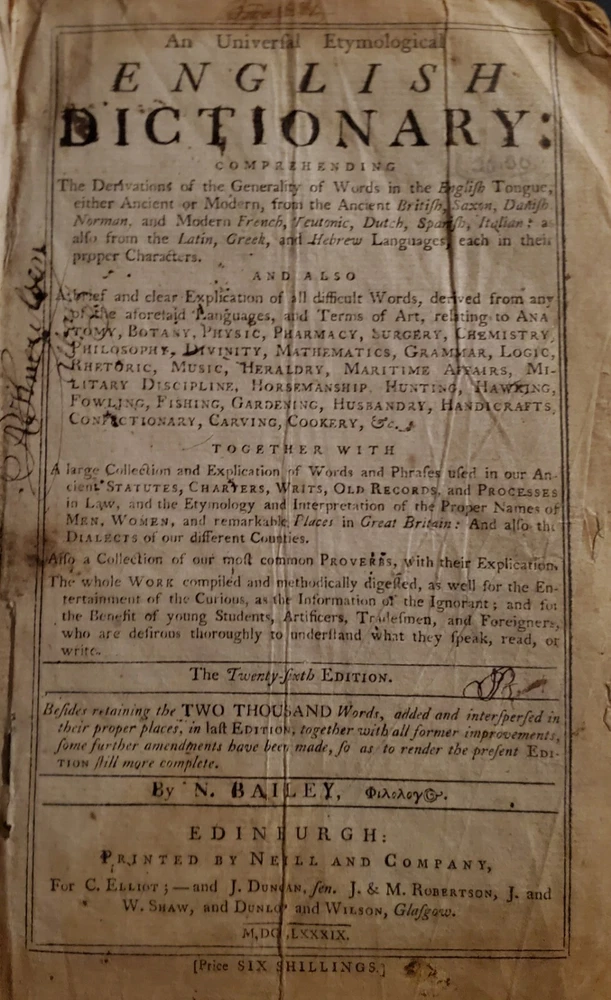 An Univerſal Etymological
ENGLISH
DICTIONARY:
COMPREHENDING
The Derivations of the Generality of Words in the Engliſh Tongue,
either Ancient or Modern, from the Ancient Britiſh, Saxon, Daniſh
Norman, and Modern French, Teutonic, Dutch, Spaniſh, Italian: a
alſo from the Latin, Greek, and Hebrew Languages, each in their
proper Characters.
AND ALSO
A brief and clear Explication of all difficult Words, derived from any
of the aforeſaid Languages, and Terms of Art, relating to ANA
TOMY, BOTANY, PHYSIC, PHARMACY, SURGERY, CHEMISTRY,
PHILOSOPHY, DIVINITY, MATHEMATICS, GRAMMAR, LOGIC,
RHETORIC, MUSIC, HERALDRY, MARITIME AFFAIRS, MI-
LITARY DISCIPLINE, HORSEMANSHIP, HUNTING, HAWKING,
FOWLING, FISHING, GARDENING, HUSBANDRY, HANDICRAFTS,
CONFECTIONARY, CARVING, COOKERY, &c.
TOGETHER WITH
A large Collection and Explication of Words and Phraſes uſed in our An-
cient STATUTES, CHARTERS, WRITS, OLD RECORDS, and PROCESSES
in Law, and the Etymology and Interpretation of the Proper Names of
MEN, WOMEN, and remarkable Places in Great Britain: And alſo the
DIALECTS of our different Counties.
Alſo a Collection of our moſt common PROVERBS, with their Explication.
The whole WORK compiled and methodically digeſted, as well for the En-
tertainment of the Curious, as the Information of the Ignorant; and for
the Benefit of young Students, Artificers, Tradeſmen, and Foreigners,
who are deſirous thoroughly to underſtand what they ſpeak, read, or
write.
The Twenty-ſixth EDITION.
Beſides retaining the TWO THOUSAND Words, added and interſperſed in
their proper places, in laſt EDITION, together with all former improvements,
ſome further amendments have been made, ſo as to render the preſent EDI-
TION ſtill more complete.
By N. BAILEY, Φιλολογ⊙.
EDINBURGH:
PRINTED BY NEILL AND COMPANY,
For C. ELLIOT; — and J. DUNCAN, ſen. J. & M. ROBERTSON, J. and
W. SHAW, and DUNLOP and WILSON, Glaſgow.
M,DCC,LXXXIX.
[Price SIX SHILLINGS.]